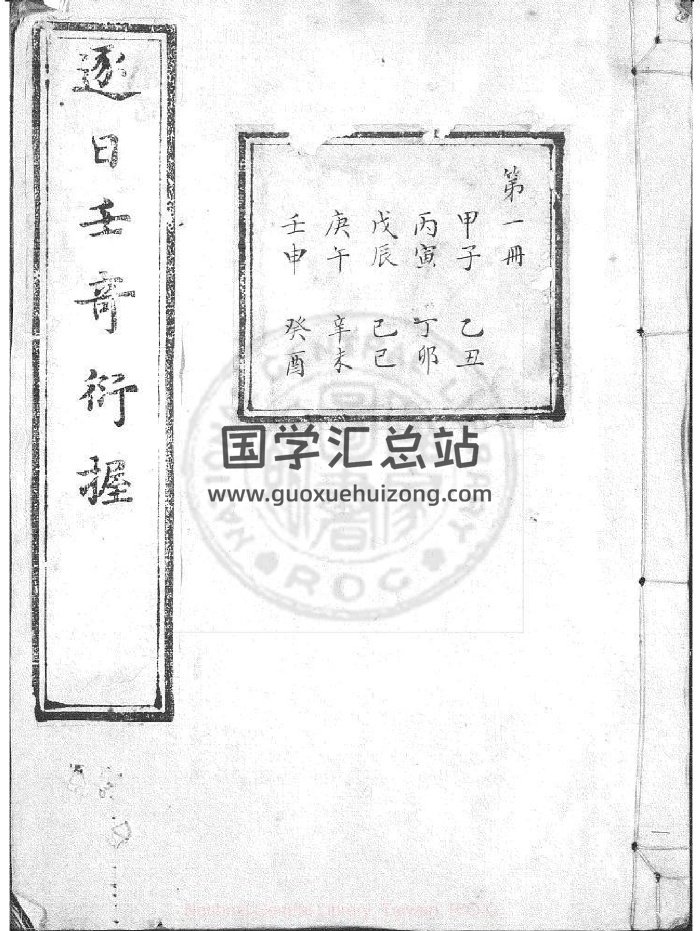 逐日壬奇衍握
第一冊
甲子 乙丑
丙寅 丁卯
戊辰 己巳
庚午 辛未
壬申 癸酉
国学汇总站
www.guoxuehuizong.com